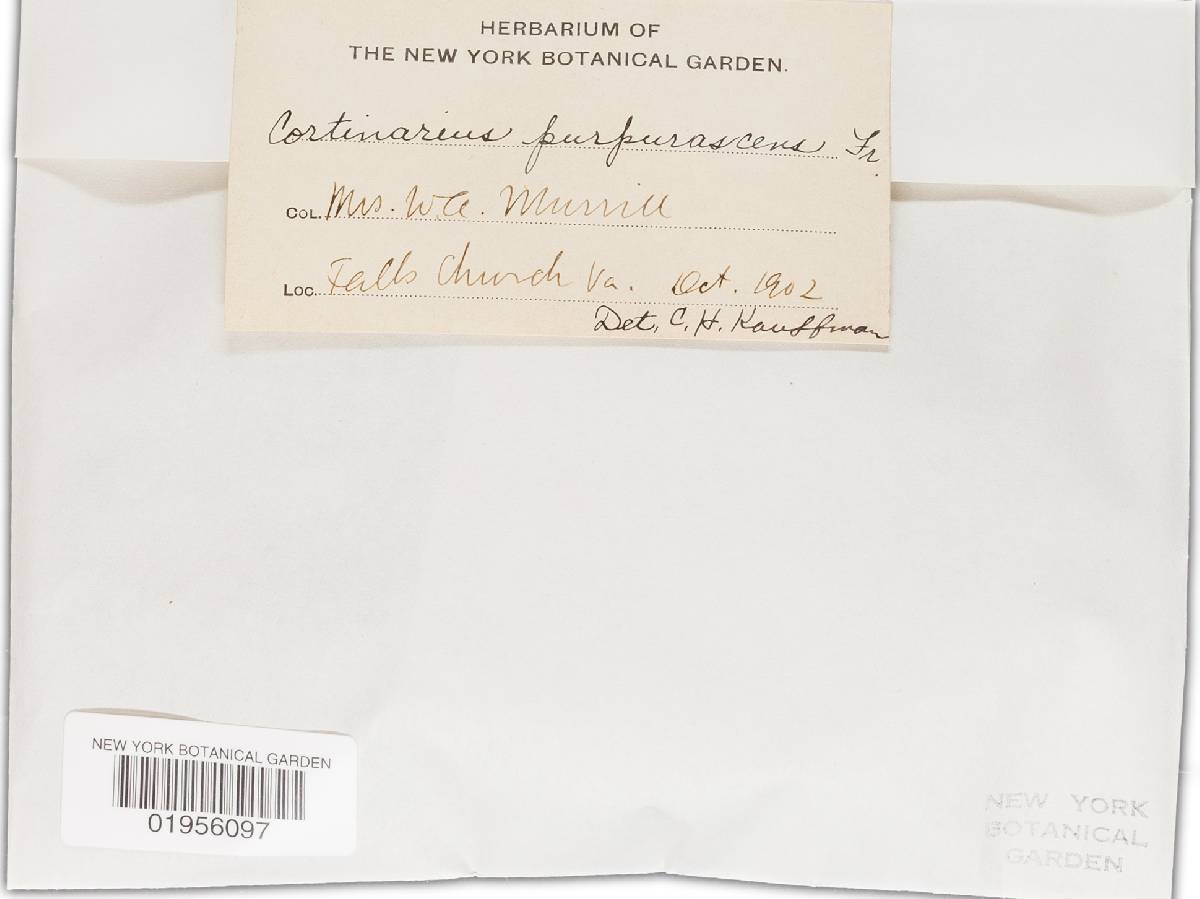 HERBARIUM OF
THE NEW YORK BOTANICAL GARDEN.
Cortinarius purpurascens Fr.
COL. Mrs. W.A. Murrill
LOC. Falls Church Va. Oct. 1902
Det. C. H. Kauffman
NEW YORK BOTANICAL GARDEN
01956097
NEW YORK
BOTANICAL
GARDEN